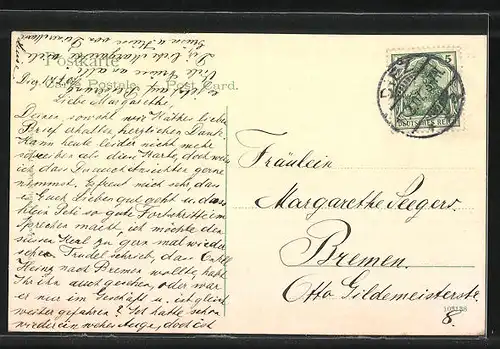 Postkarte
Carte Postale - Post Card.
Liebe Margarethe,
Deinen sowohl wie Käthes lieben
Brief erhalten herzlichen Dank.
Kann heute leider nicht mehr
schreiben als diese Karte, doch weiss
ich, dass Du auch Ansichten gerne
nimmst. Es freut mich sehr, dass
es Euch Lieben gut geht u. dass
klein Peti so gute Fortschritte im
Sprechen macht, ich möchte den
süssen Kerl zu gern mal wieder
sehen. Trudel schrieb, dass Onkel
Heinz nach Bremen wollte, habt
Ihr ihn auch gesehen, oder war
er nur im Geschäft u. ist gleich
weiter gefahren? Gol hatte schon
wieder ein wehes Auge, doch ist
5
DEUTSCHES REICH
Fräulein
Margarethe Seegers.
Bremen.
Otto Gildemeisterstr.
8.